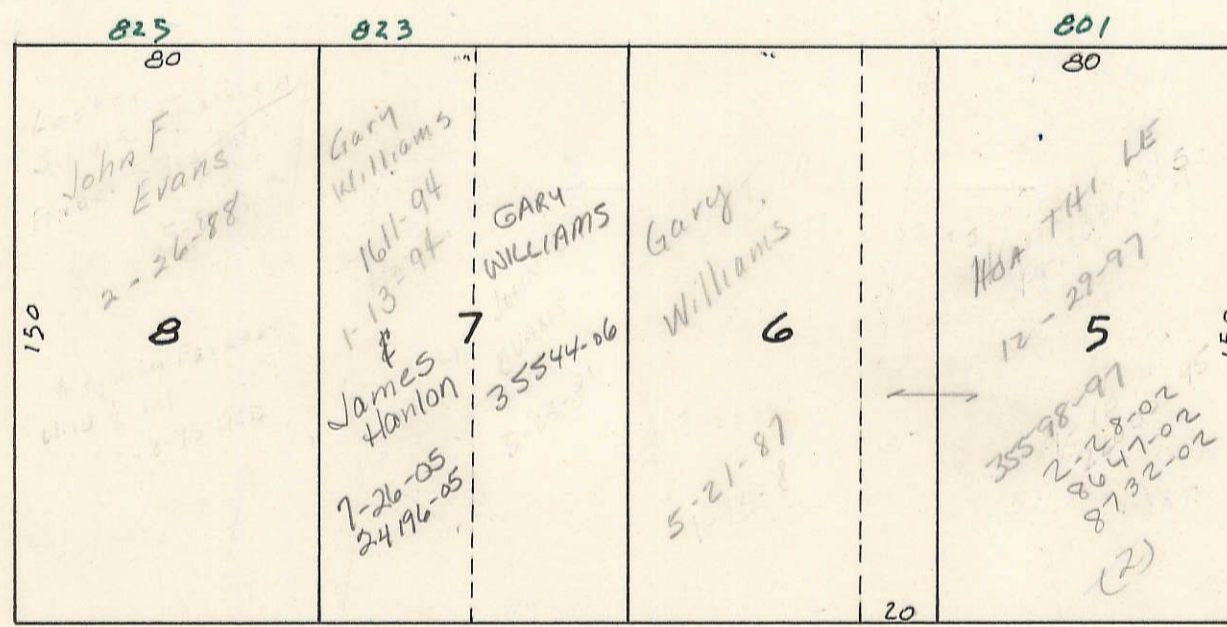 825
823
801
80
John F.
Evans
2-26-88
150
8
"
Gary
Williams
1611-94
1-13-94
&
James
Hanlon
7-26-05
24196-05
7
GARY
WILLIAMS
35544-06
"
Gary
Williams
6
5-21-87
20
80
HOA THI LE
12-29-97
5
35598-97
2-28-02
8647-02
8732-02
(2)
150